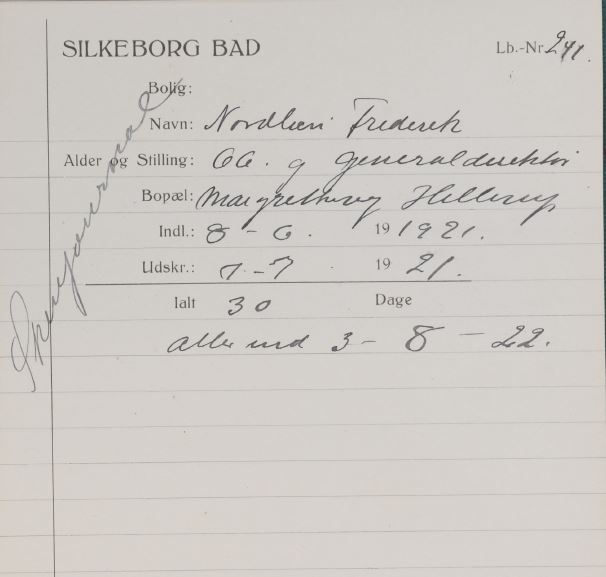 SILKEBORG BAD
Lb.-Nr 241.
Bolig:
Navn: Nordlien Frederik
Alder og Stilling: 66. g Generaldirektør
Bopæl: Margrethevej Hellerup
Indl.: 8 - 6. 19 1921.
Udskr.: 7 - 7 19 21.
Ialt 30 Dage
atter ind 3 - 8 - 22.